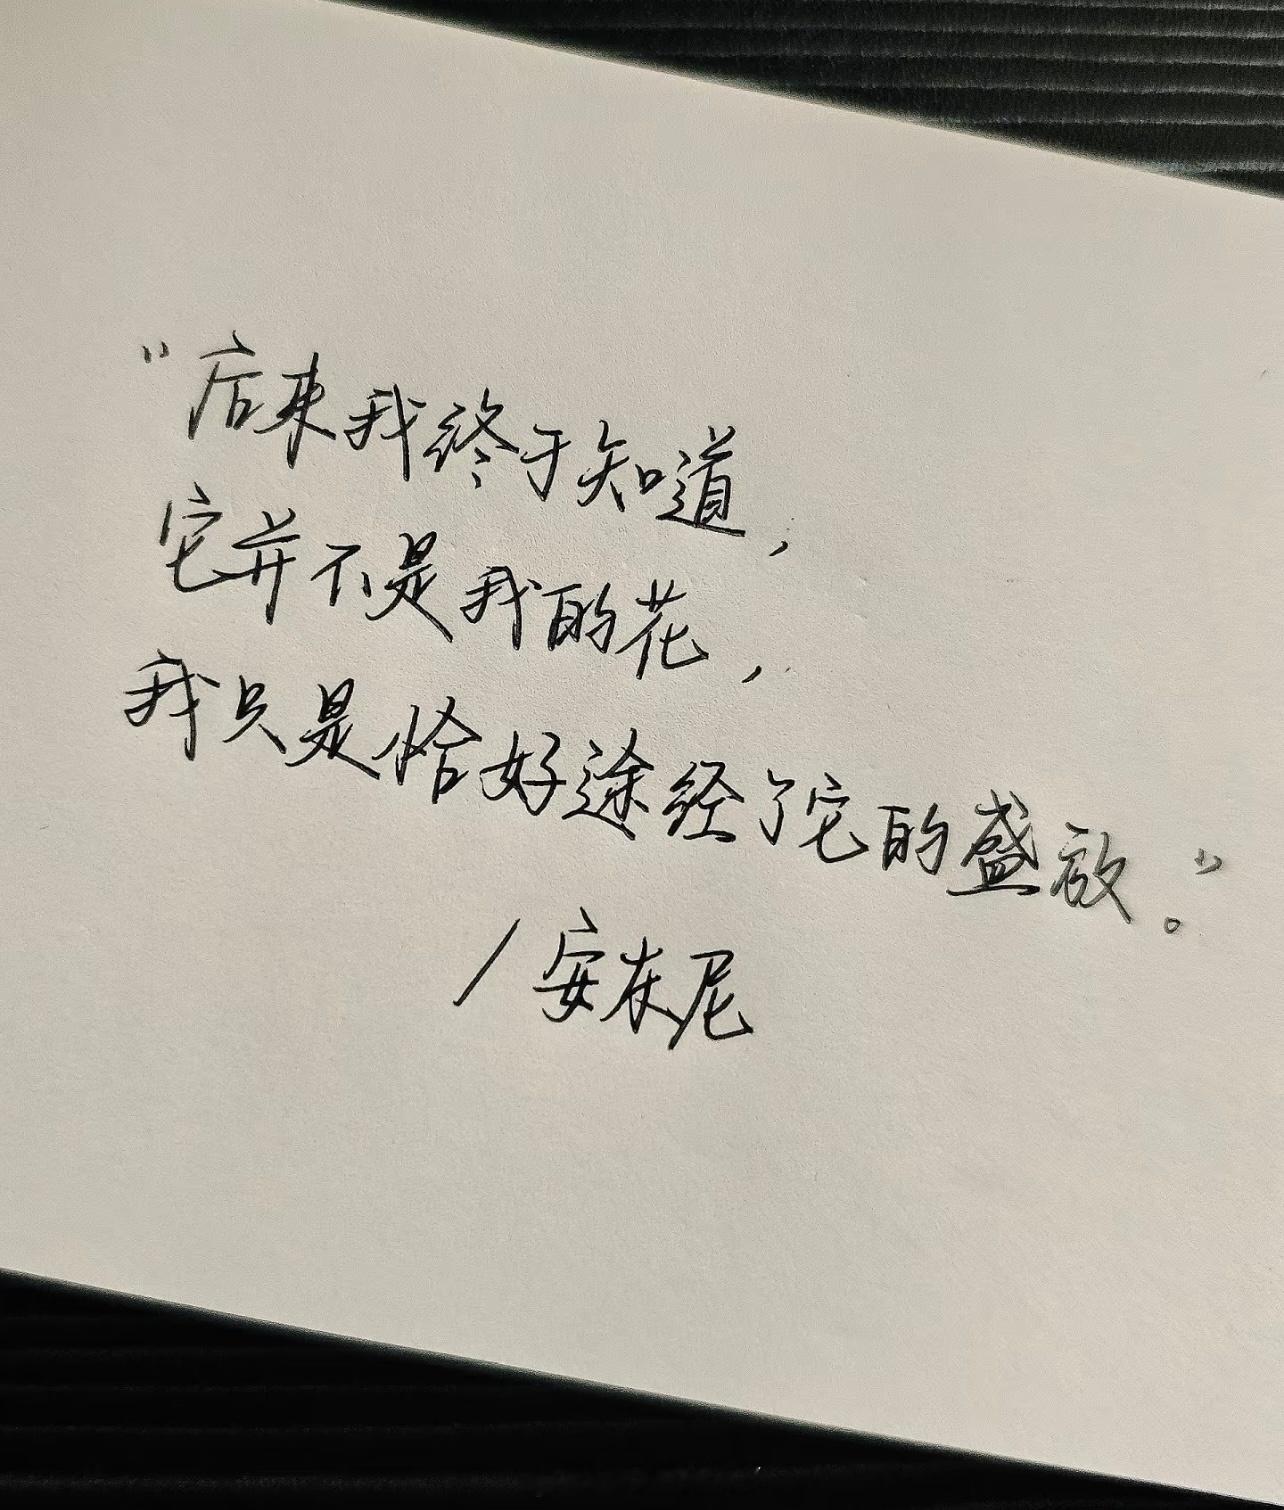 “后来我终于知道，
它并不是我的花，
我只是恰好途经了它的盛放。”
/安东尼